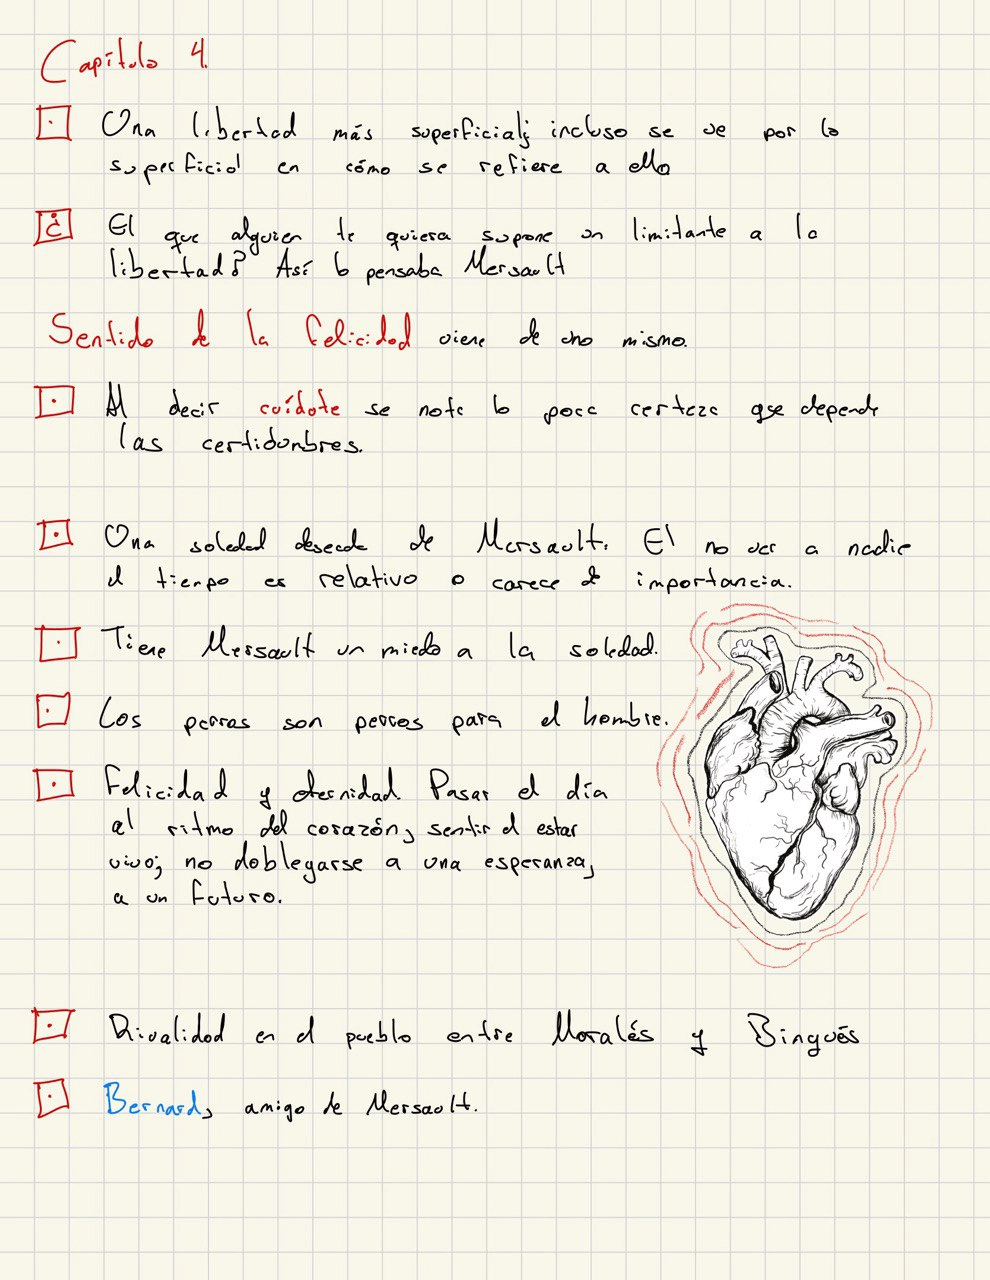 Capítulo 4.
Una libertad más superficial; incluso se ve por lo
superficial en cómo se refiere a ello
¿ El que alguien te quiera supone un limitante a la
libertad? Así lo pensaba Mersault
Sentido de la felicidad viene de uno mismo.
Al decir cuídate se nota la poca certeza que depende
las certidumbres.
Una soledad deseada de Mersault. El no ver a nadie
el tiempo es relativo o carece de importancia.
Tiene Mersault un miedo a la soledad.
Los perros son perros para el hombre.
Felicidad y eternidad. Pasar el día
al ritmo del corazón, sentir el estar
vivo; no doblegarse a una esperanza,
a un futuro.
Rivalidad en el pueblo entre Morales y Bingués
Bernard, amigo de Mersault.